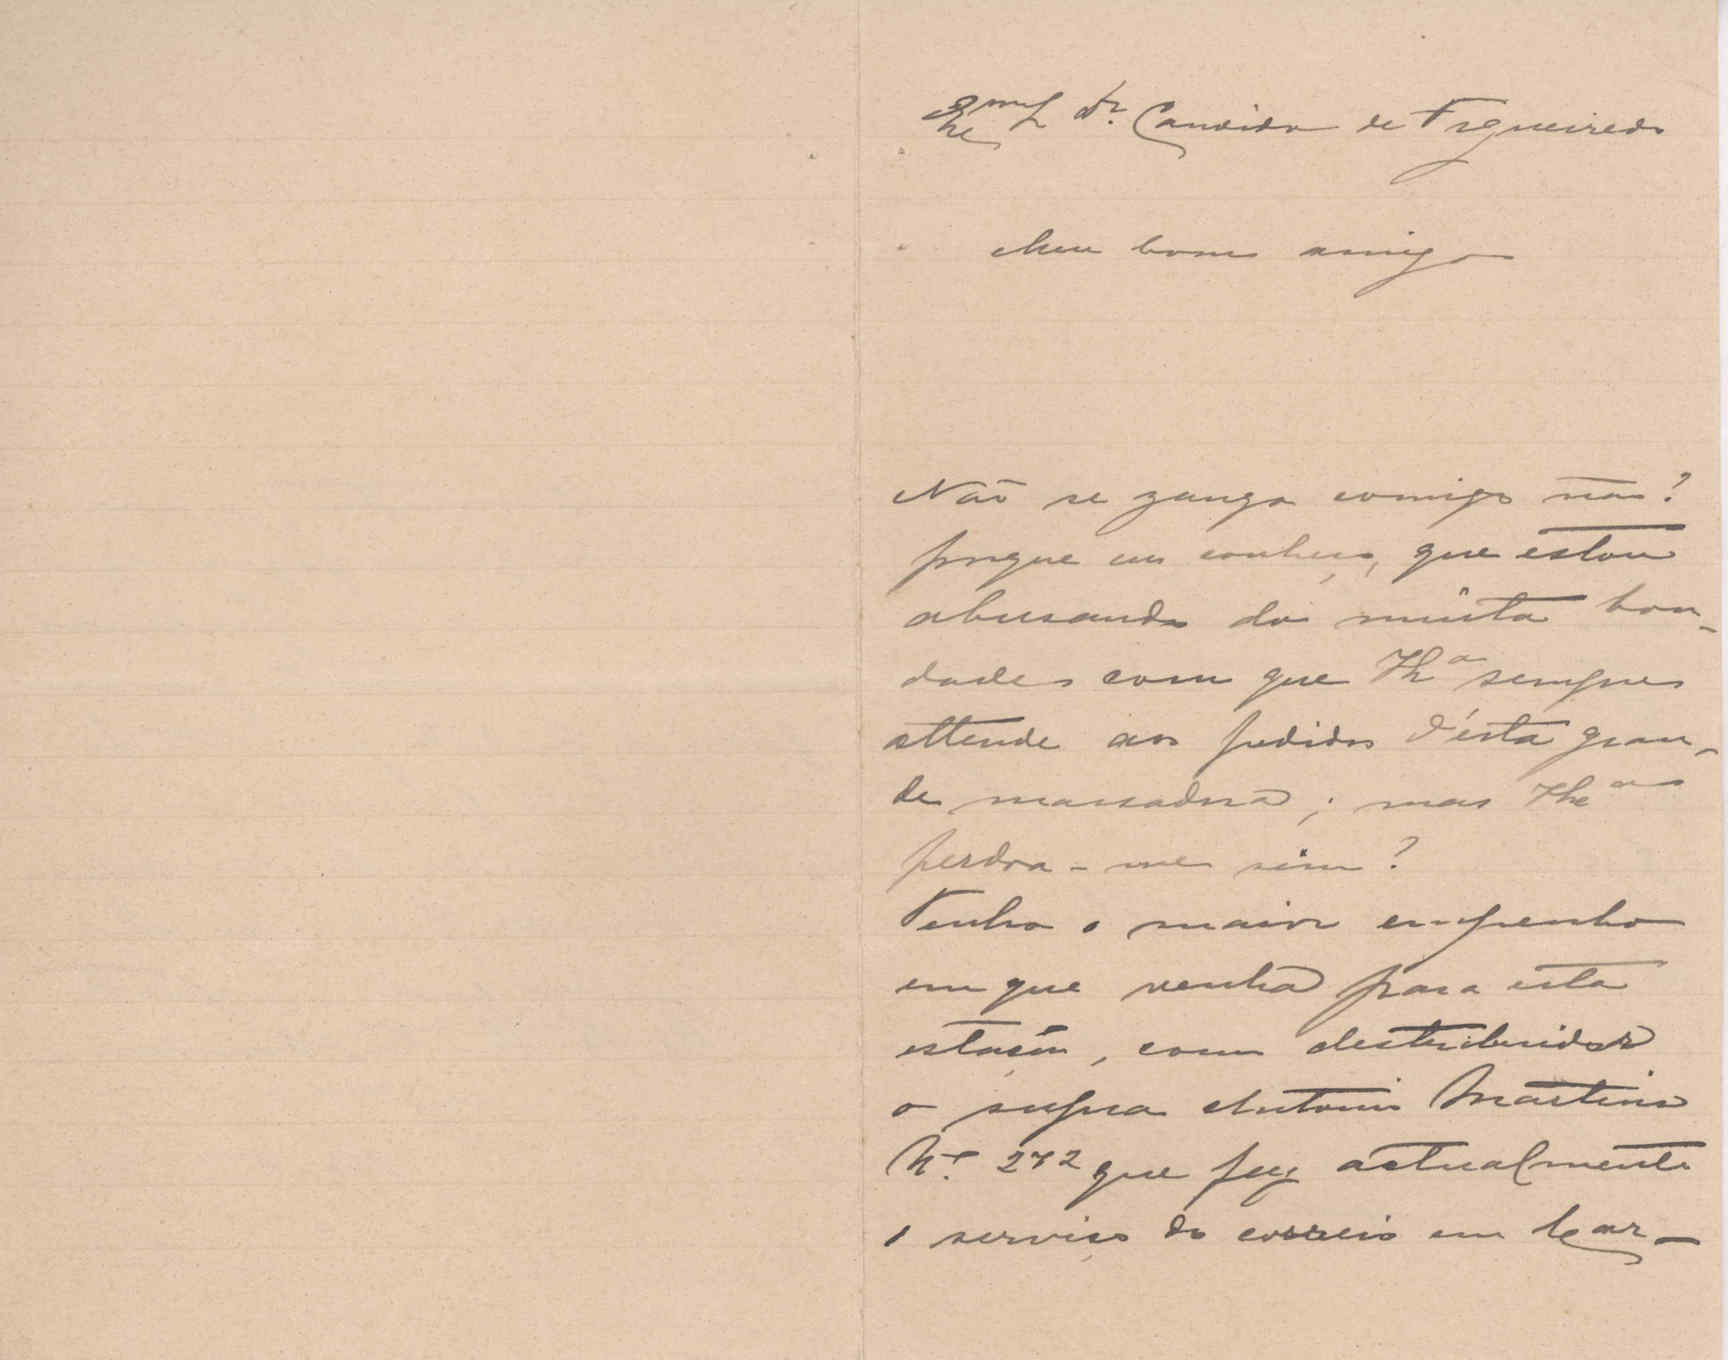 Exmo Dr. Candido de Figueiredo
Meu bom amigo
Não se zanga comigo não?
porque eu conheço, que estou
abusando da muita bon-
dade com que sempre
attende aos pedidos d'esta gran-
de massadora; mas
perdoa-me sim?
Tenho o maior empenho
em que venha para esta
estação, como destribuidor
o supra Antonio Martins
Nº 272 que faz actualmente
o serviço do correio em Car-